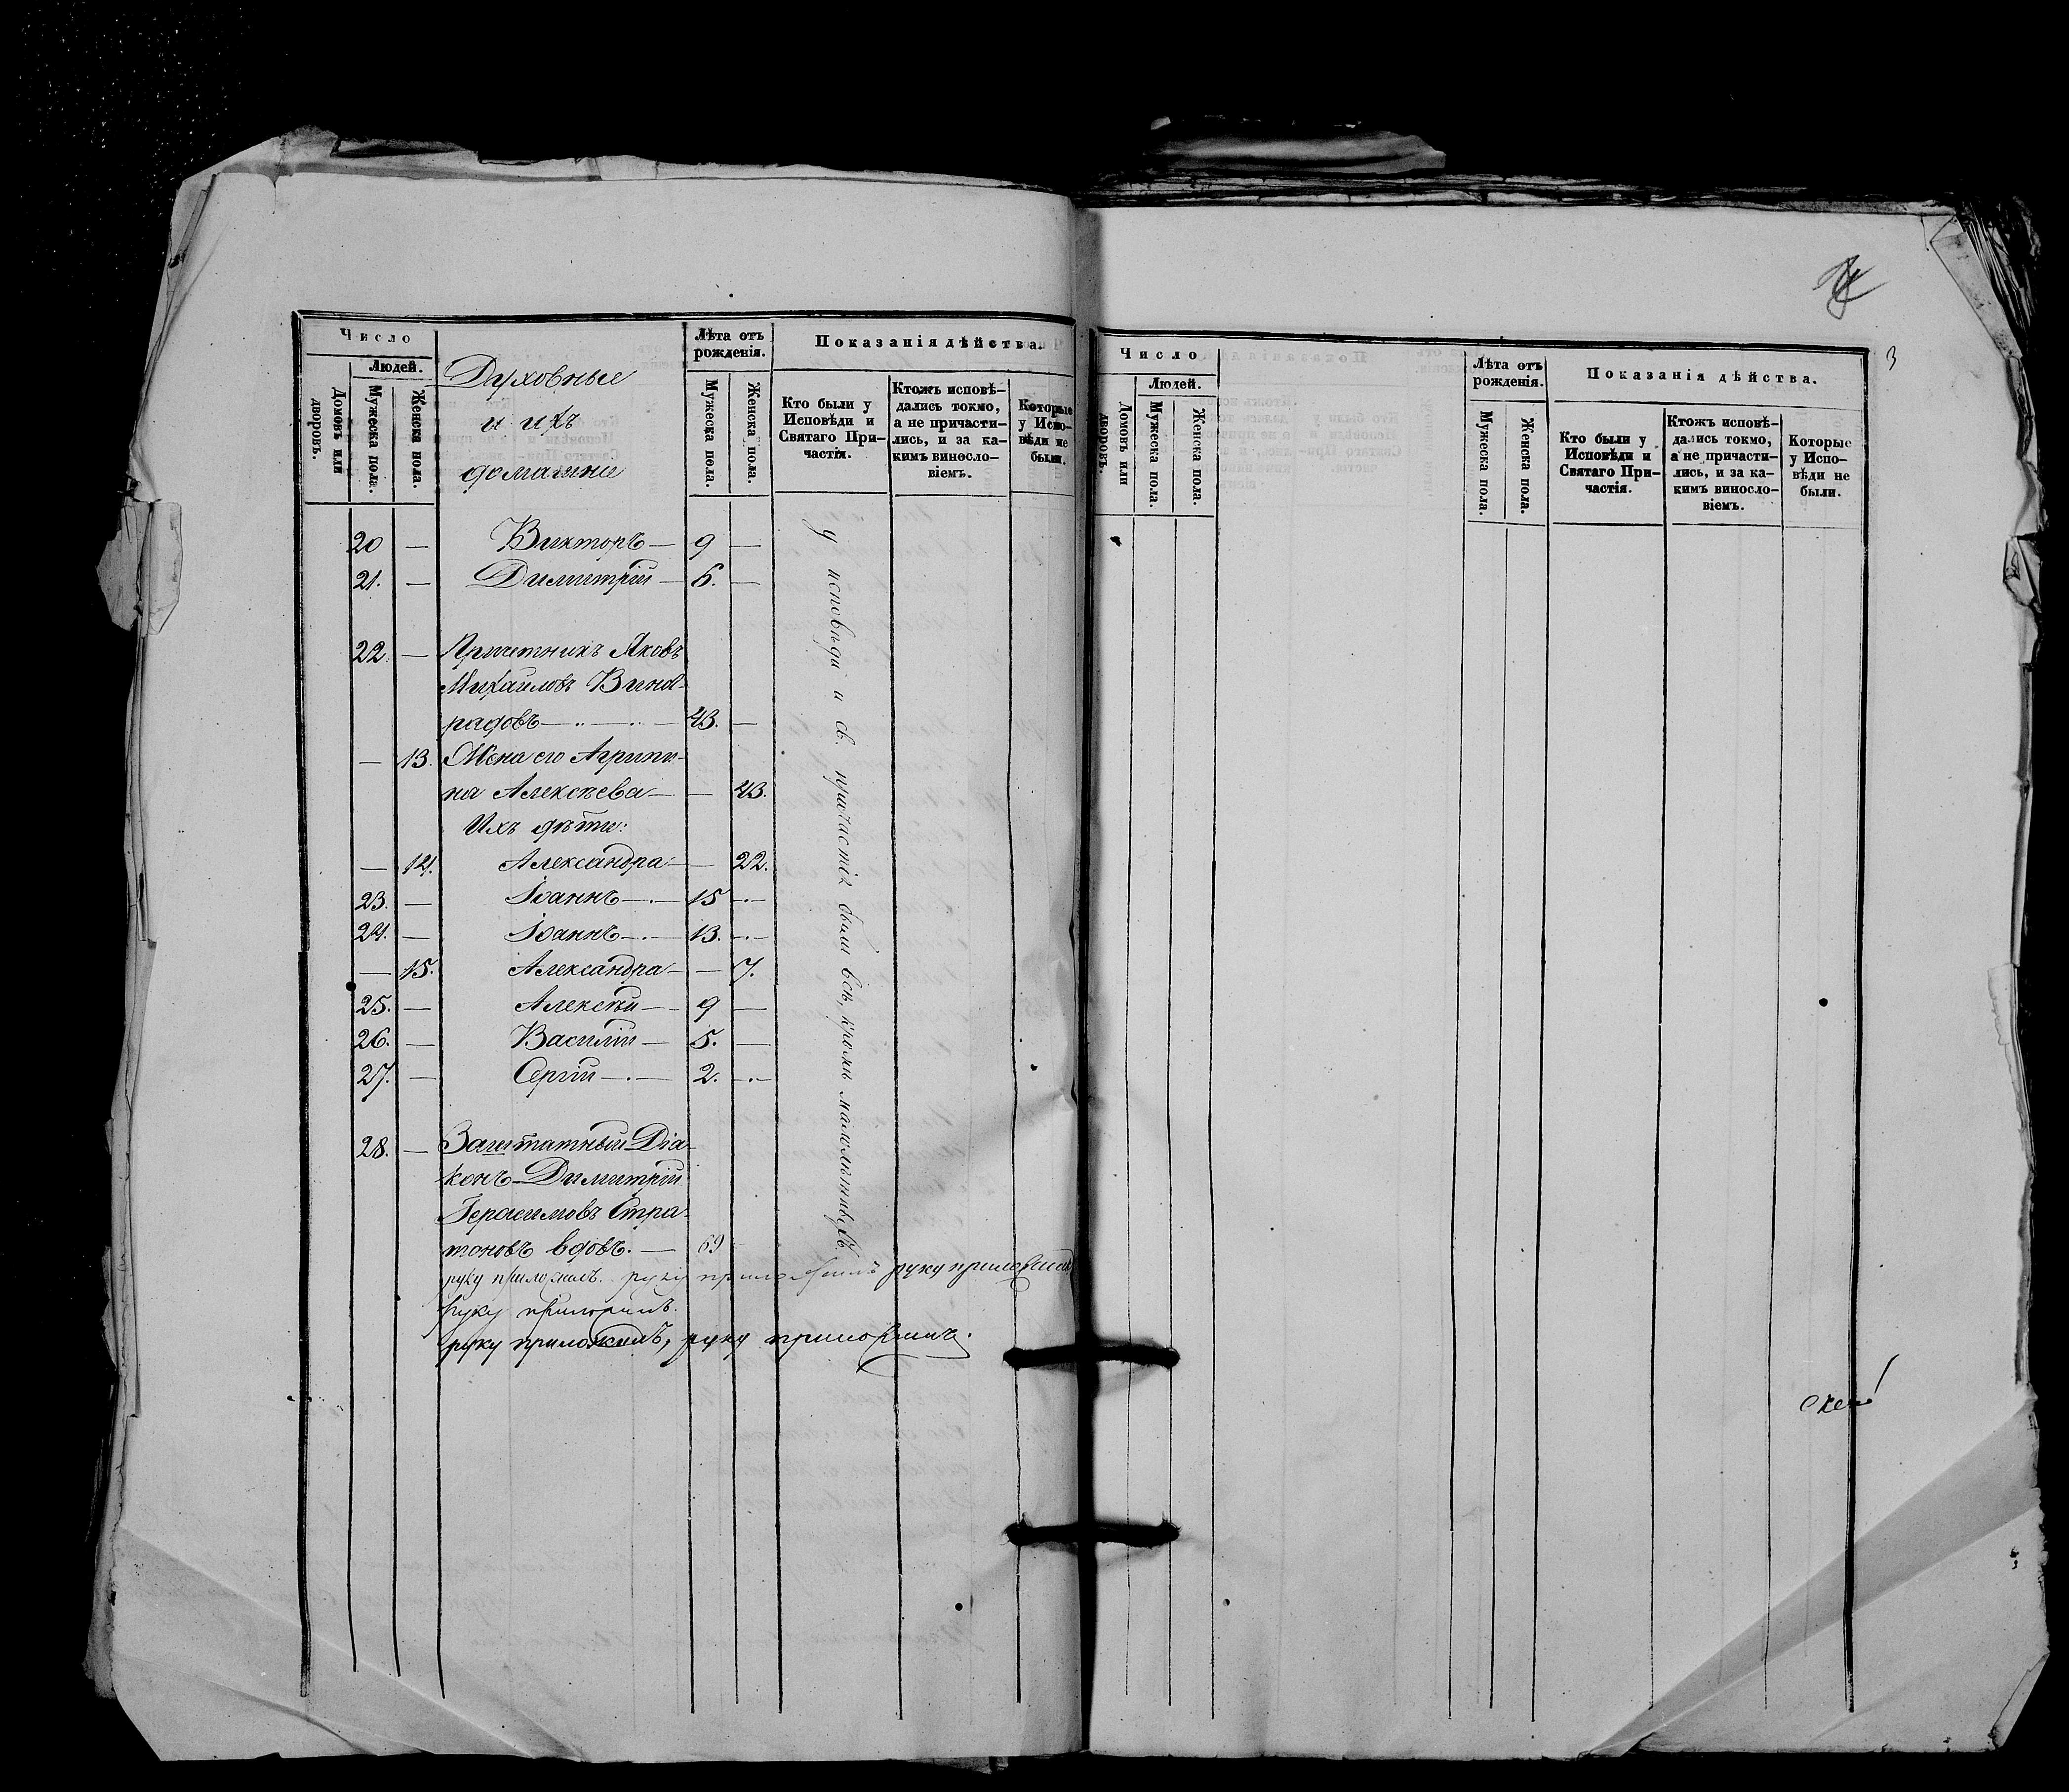 Число
Людей.
Домовъ или дворовъ.
Мужеска пола.
Женска пола.
Духовные
и ихъ
домашніе
Лѣта отъ рожденія.
Мужеска пола.
Женска пола.
Показанія дѣйства.
Кто были у Исповѣди и Святаго При-частія.
Ктожъ исповѣ-дались токмо, а не причасти-лись, и за ка-кимъ винословіемъ.
Которые у Испо-вѣди не были.
20 — Викторъ — 9 —
21. — Димитрій — 6. —
22 — Причетникъ Яковъ
Михайловъ Вино-
градовъ — 43. —
— 13. Жена его Агрипи-
на Алексѣева — — 43.
Ихъ дѣти:
— 14. Александра — — 22.
23. — Іоаннъ — 15 —
24. — Іоаннъ — 13. —
— 15. Александра — — 7.
25. — Алексѣй — 9 —
26. — Василій — 5. —
27. — Сергій — 2. —
28. — Заштатный Діа-
конъ Димитрій
Герасимовъ Стра-
тоновъ вдовъ. — 69
у исповѣди и св. причастія были всѣ, кромѣ малолѣтнихъ.
руку приложилъ. руку приложилъ руку приложилъ
руку приложилъ.
руку приложилъ, руку приложилъ.
3
Число
Людей.
Домовъ или дворовъ.
Мужеска пола.
Женска пола.
Лѣта отъ рожденія.
Мужеска пола.
Женска пола.
Показанія дѣйства.
Кто были у Исповѣди и Святаго При-частія.
Ктожъ исповѣ-дались токмо, а не причасти-лись, и за ка-кимъ винословіемъ.
Которые у Испо-вѣди не были.